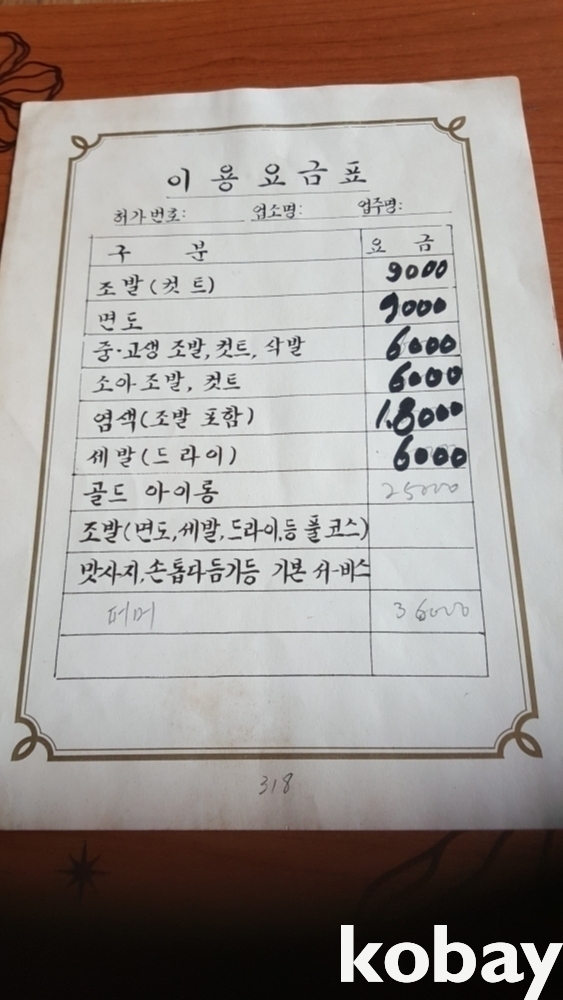 이 용 요 금 표
허가번호: 업소명: 업주명:
구 분 요 금
조발(컷트) 9000
면도 9000
중·고생 조발, 컷트, 삭발 6000
소아 조발, 컷트 6000
염색(조발 포함) 18000
세발(드라이) 6000
골드 아이롱 25000
조발(면도,세발,드라이,등 풀코스)
맛사지,손톱다듬기등 기본 서비스
퍼머 36000
318
kobay